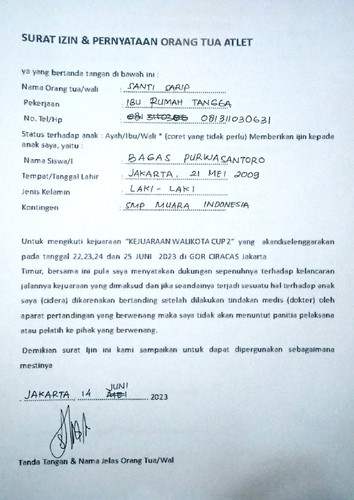 SURAT IZIN & PERNYATAAN ORANG TUA ATLET
ya yang bertanda tangan di bawah ini :
Nama Orang tua/wali : SANTI SARIP
Pekerjaan : IBU RUMAH TANGGA
No. Tel/Hp : 081311030631
Status terhadap anak : Ayah/Ibu/Wali * (coret yang tidak perlu) Memberikan ijin kepada
anak saya, yaitu :
Nama Siswa/I : BAGAS PURWASANTORO
Tempat/Tanggal Lahir : JAKARTA, 21 MEI 2009
Jenis Kelamin : LAKI - LAKI
Kontingen : SMP MUARA INDONESIA
Untuk mengikuti kejuaraan "KEJUARAAN WALIKOTA CUP 2" yang akandiselenggarakan
pada tanggal 22,23,24 dan 25 JUNI 2023 di GOR CIRACAS Jakarta
Timur, bersama ini pula saya menyatakan dukungan sepenuhnya terhadap kelancaran
jalannya kejuaraan yang dimaksud dan jika seandainya terjadi sesuatu hal terhadap anak
saya (cidera) dikarenakan bertanding setelah dilakukan tindakan medis (dokter) oleh
aparat pertandingan yang berwenang maka saya tidak akan menuntut panitia pelaksana
atau pelatih ke pihak yang berwenang.
Demikian surat Ijin ini kami sampaikan untuk dapat dipergunakan sebagaimana
mestinya
JAKARTA, 14 JUNI 2023
Tanda Tangan & Nama Jelas Orang Tua/Wal